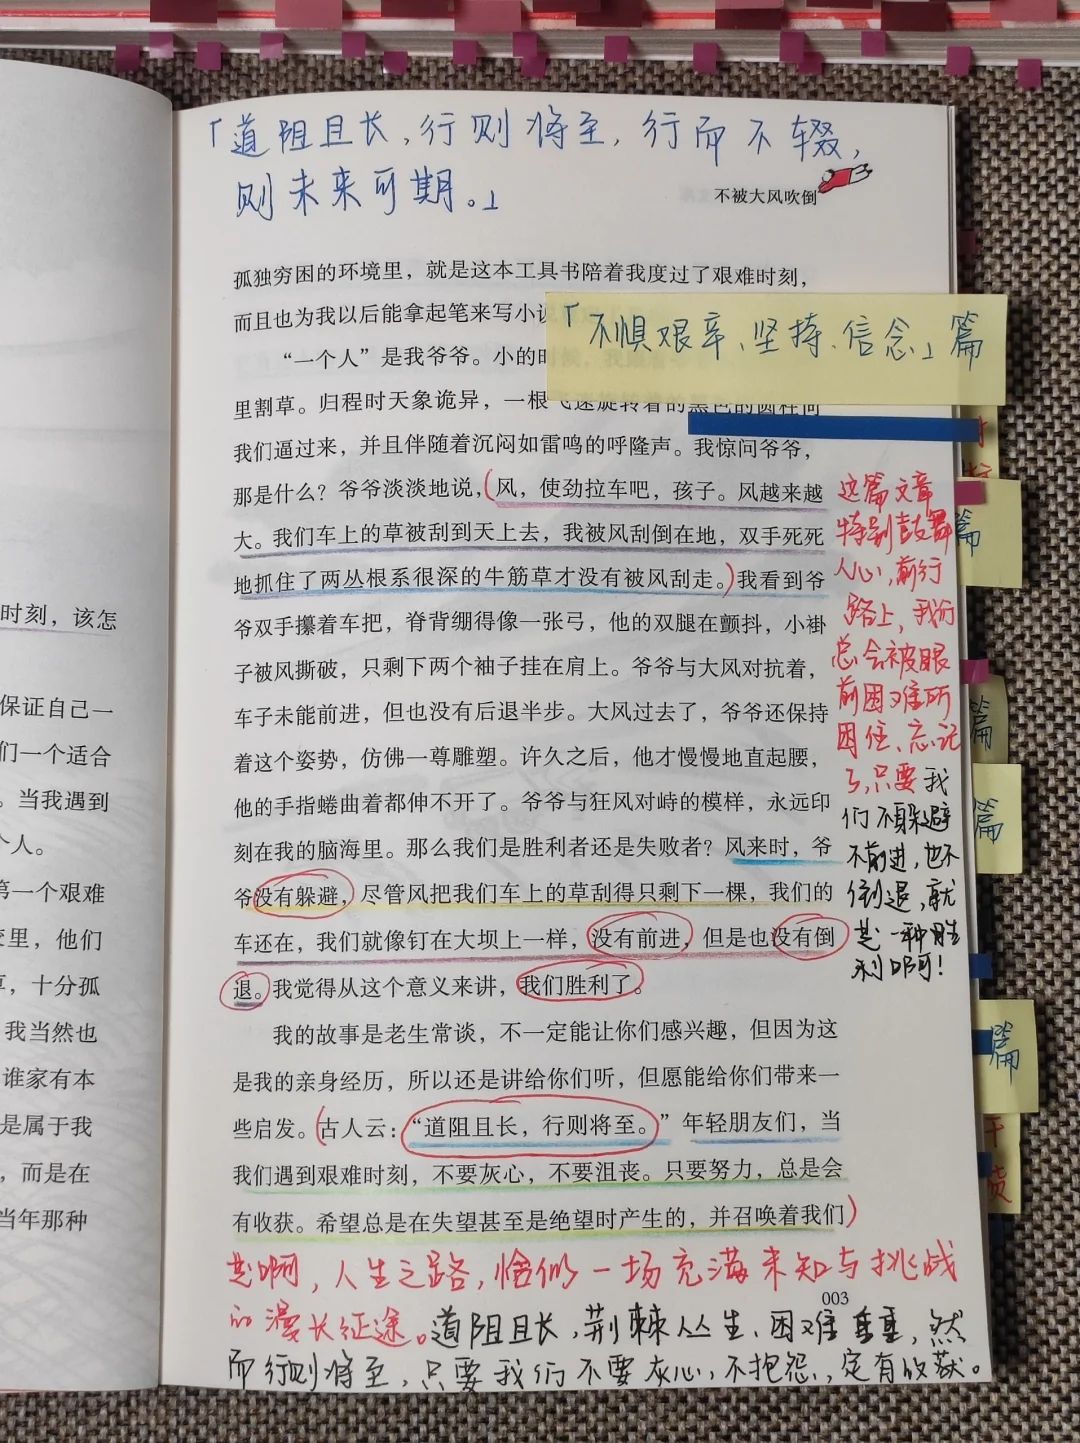 「道阻且长,行则将至,行而不辍,
则未来可期。」
不被大风吹倒
孤独穷困的环境里，就是这本工具书陪着我度过了艰难时刻，
而且也为我以后能拿起笔来写小说
「不惧艰辛、坚持、信念」篇
“一个人”是我爷爷。小的时候，我
里割草。归程时天象诡异，一根飞速旋转着的黑色的圆柱向
我们逼过来，并且伴随着沉闷如雷鸣的呼隆声。我惊问爷爷，
那是什么？爷爷淡淡地说，(风，使劲拉车吧，孩子。风越来越
大。我们车上的草被刮到天上去，我被风刮倒在地，双手死死
地抓住了两丛根系很深的牛筋草才没有被风刮走。)我看到爷
爷双手攥着车把，脊背绷得像一张弓，他的双腿在颤抖，小褂
子被风撕破，只剩下两个袖子挂在肩上。爷爷与大风对抗着，
车子未能前进，但也没有后退半步。大风过去了，爷爷还保持
着这个姿势，仿佛一尊雕塑。许久之后，他才慢慢地直起腰，
他的手指蜷曲着都伸不开了。爷爷与狂风对峙的模样，永远印
刻在我的脑海里。那么我们是胜利者还是失败者？风来时，爷
爷没有躲避，尽管风把我们车上的草刮得只剩下一棵，我们的
车还在，我们就像钉在大坝上一样，没有前进，但是也没有倒
退。我觉得从这个意义来讲，我们胜利了。
我的故事是老生常谈，不一定能让你们感兴趣，但因为这
是我的亲身经历，所以还是讲给你们听，但愿能给你们带来一
些启发。(古人云：“道阻且长，行则将至。”年轻朋友们，当
我们遇到艰难时刻，不要灰心，不要沮丧。只要努力，总是会
有收获。希望总是在失望甚至是绝望时产生的，并召唤着我们)
这篇文章
特别鼓舞
人心,前行
路上,我们
总会被眼
前困难所
困住、忘记
了,只要我
们不躲避
不前进,也不
倒退,就
是一种胜
利啊!
是啊,人生之路,恰似一场充满未知与挑战
003
的漫长征途。道阻且长,荆棘丛生、困难重重,然
而行则将至,只要我们不要灰心,不抱怨,定有收获。
时刻，该怎
保证自己一
们一个适合
。当我遇到
个人。
第一个艰难
里，他们
，十分孤
我当然也
谁家有本
是属于我
，而是在
当年那种
篇
篇
篇
篇